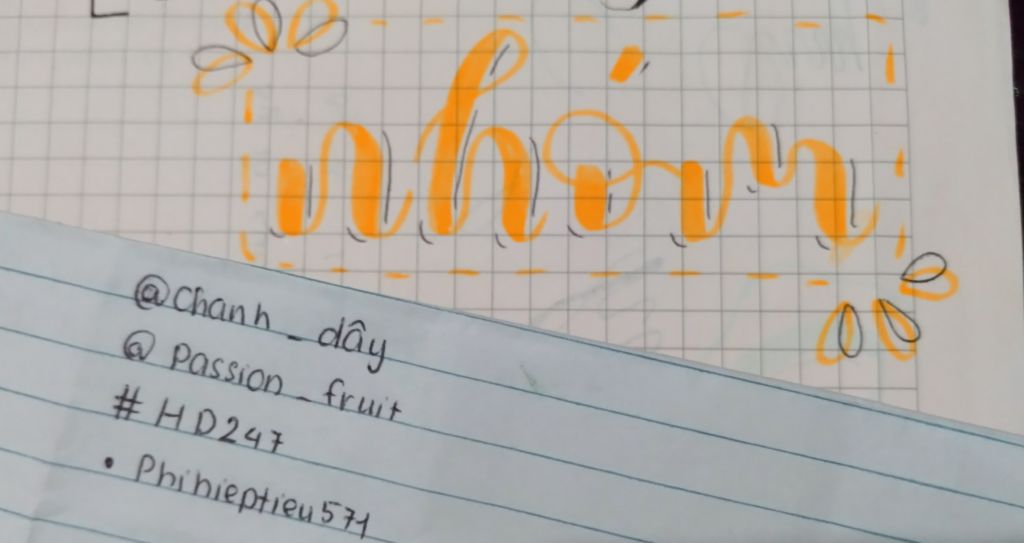 nhóm
@chanh_dây
@passion_fruit
#HD247
• Phihieptieu571